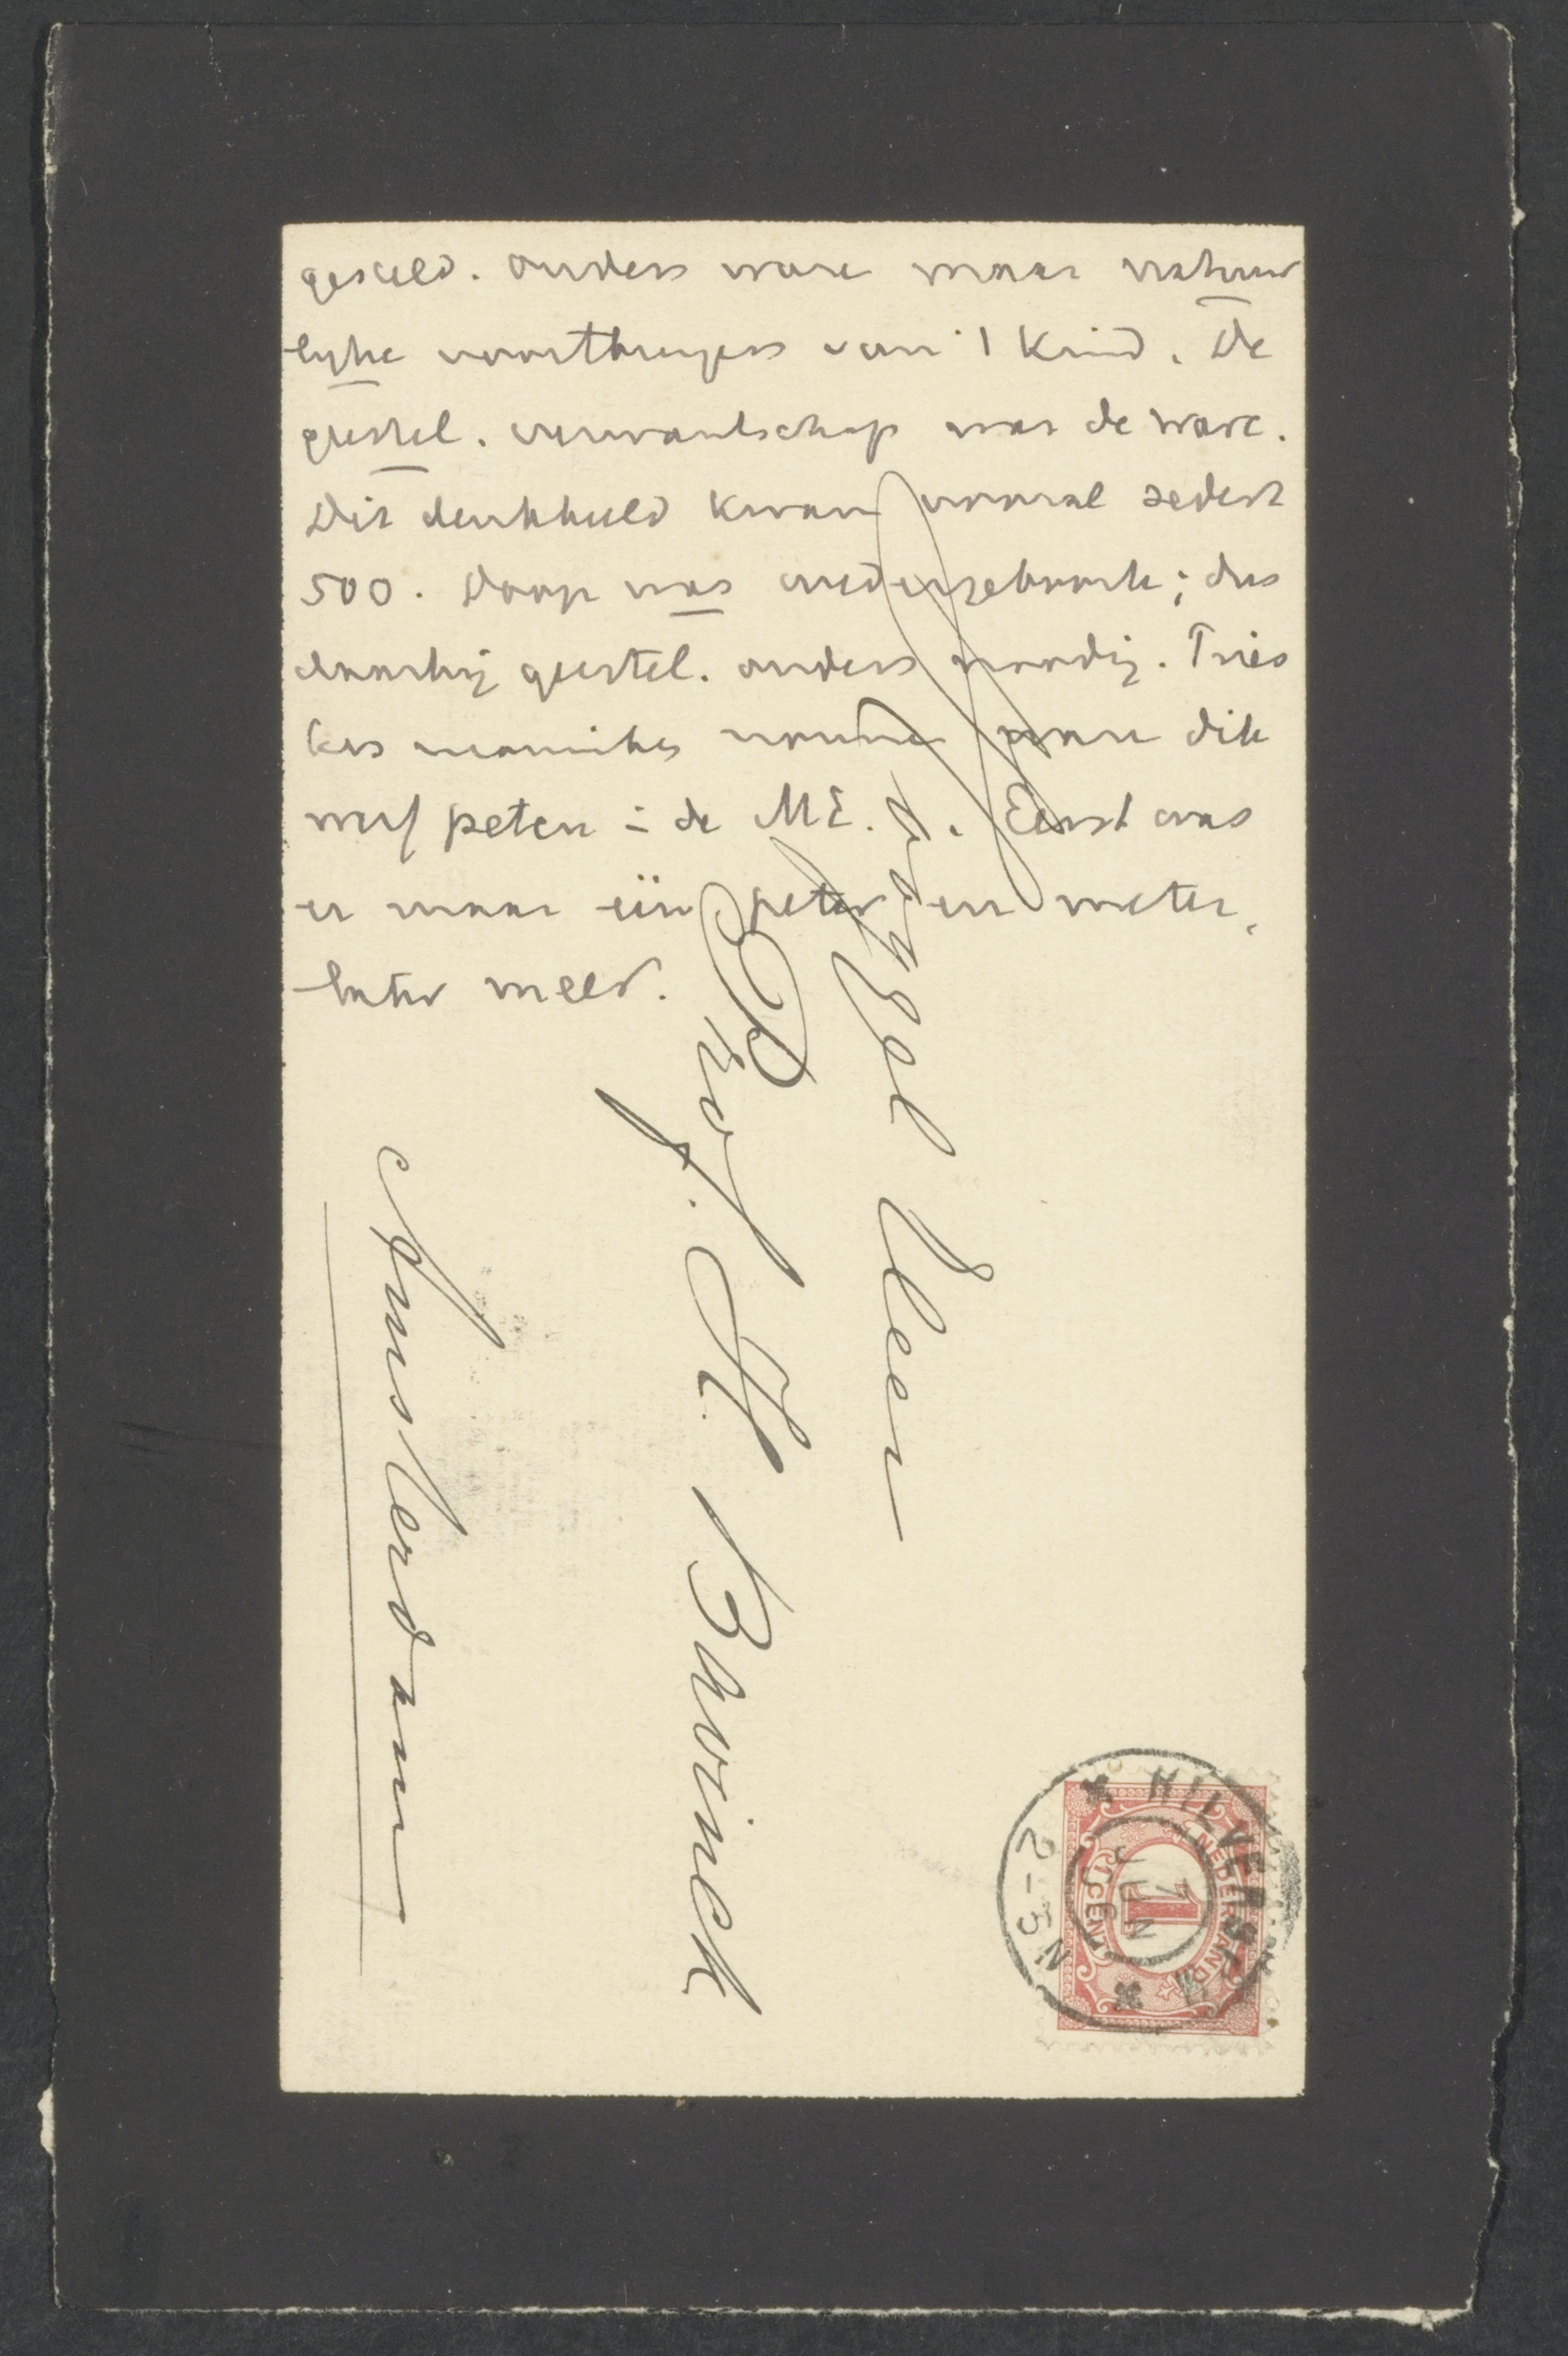 gesteld. ouders ware maar natuur
lyke voortbrengers van 't kind. De
geestel. verwantschap was de ware.
Dit denkbeeld kwam vooral sedert
500. Doop was wedergeboorte; dus
daarbij geestel. ouders noodig. Pries
ters monniken ware dik
werf peten in de ME. Eerst was
er maar één peter en meter,
later meer.
WelEdel Heer
Prof. H. Bavinck
Amsterdam
HILVERSUM
7 JUN
2-3N
NEDERLAND
1
1 CENT